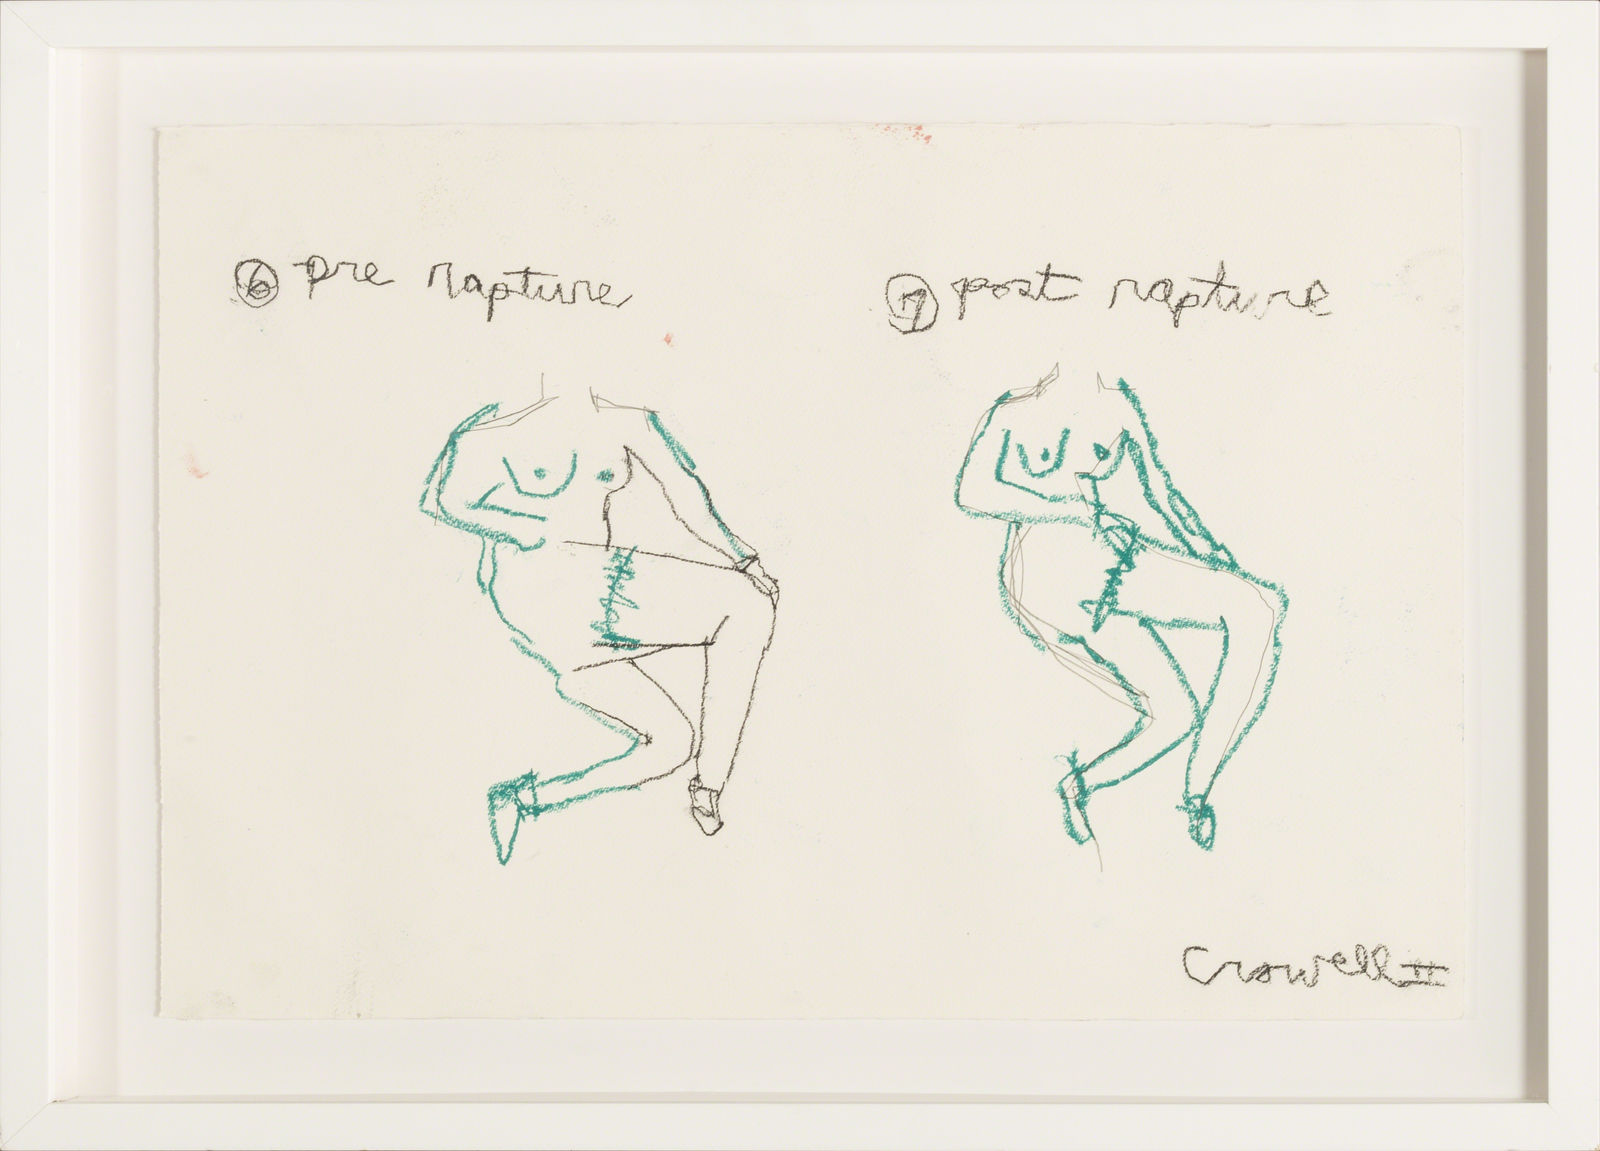 6 pre rapture
7 post rapture
Crowell II